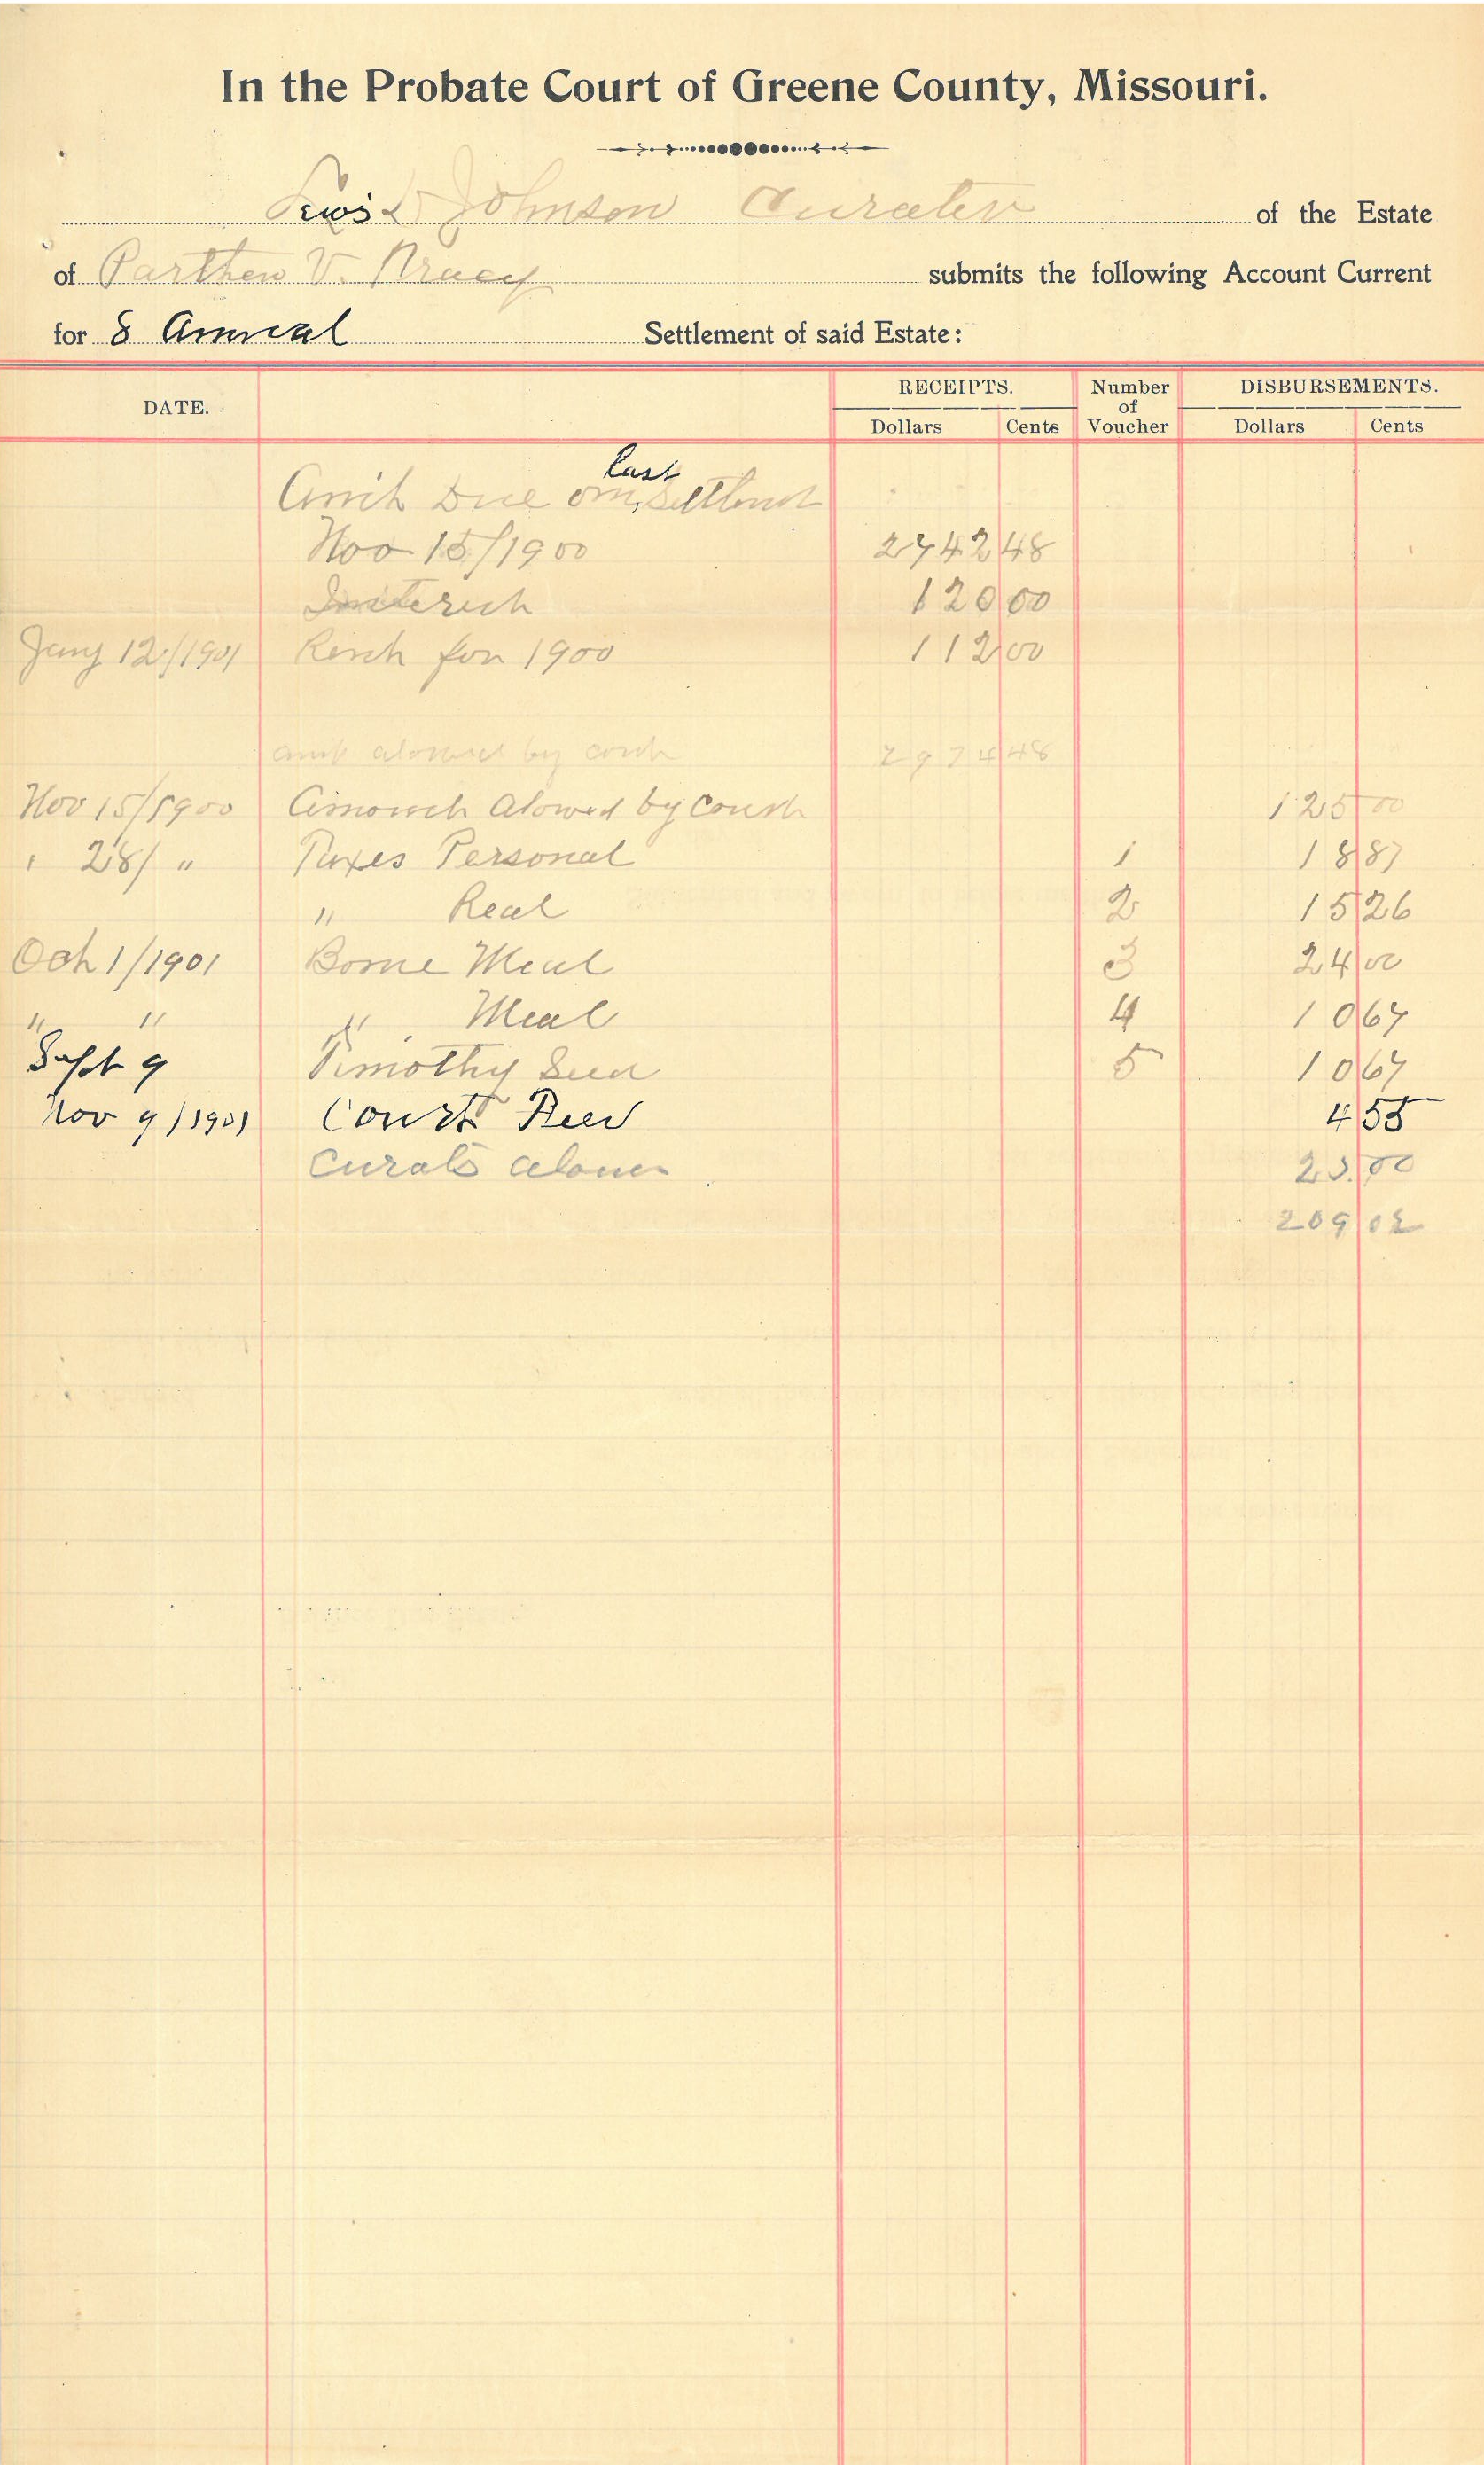 In the Probate Court of Greene County, Missouri.
Lewis L Johnson Curator of the Estate
of Parthen V. Bracy submits the following Account Current
for 8 Annual Settlement of said Estate:
DATE. RECEIPTS. Number of Voucher DISBURSEMENTS.
Dollars Cents Dollars Cents
Amt Due on last Settlement
Nov 15/1900 2742 48
Interest 120 00
Jany 12/1901 Rent for 1900 112 00
amt alowed by court 2974 48
Nov 15/1900 Amount Alowed by Court 125 00
" 28/ " Taxes Personal 1 18 87
" Real 2 15 26
Oct 1/1901 Bone Meal 3 24 00
" " " Meal 4 10 67
Sept 9 Timothy Seed 5 10 67
Nov 9/1901 Court Fees 4 55
Curats alown
209 02